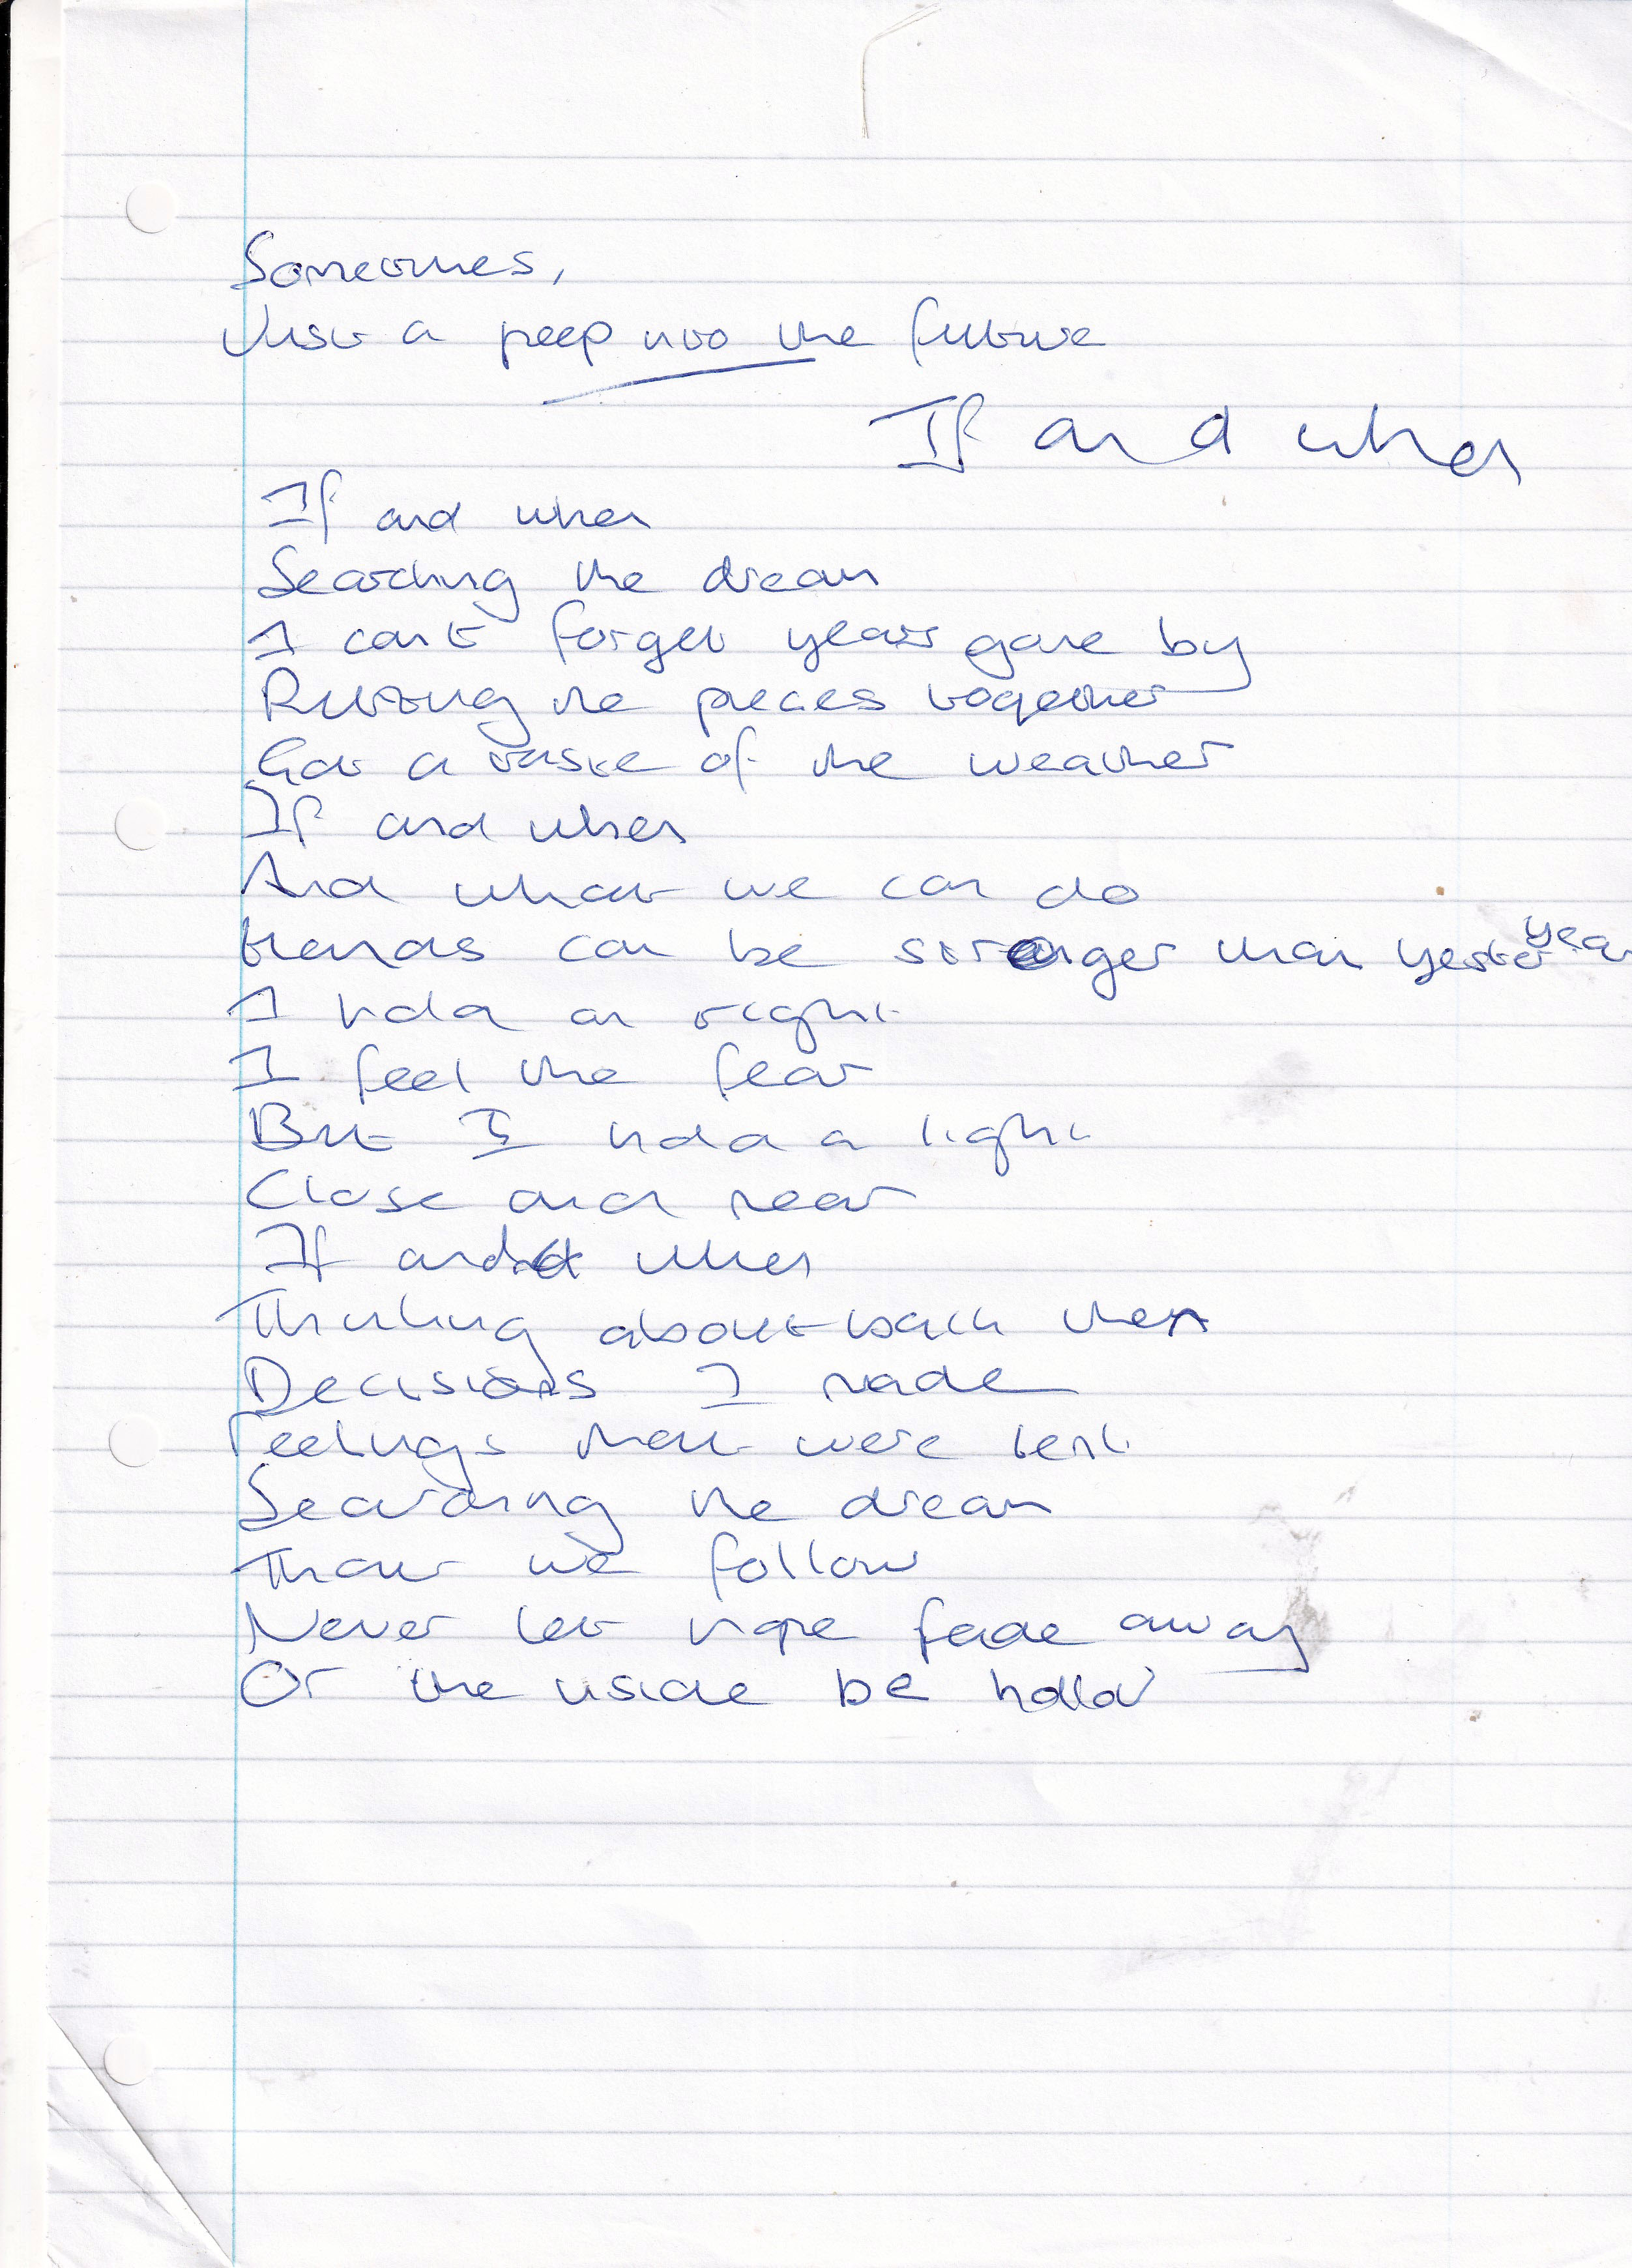 Sometimes,
Just a peep into the future
If and when
If and when
Searching the dream
I cant forget years gone by
Putting the pieces together
Got a taste of the weather
If and when
And what we can do
trends can be stronger than yesteryear
I hold on tight
I feel the fear
But I hold a light
Close and near
If and when
Thinking about back then
Decisions I made
Feelings that were lent
Searching the dream
That we follow
Never let hope fade away
Or the inside be hollow